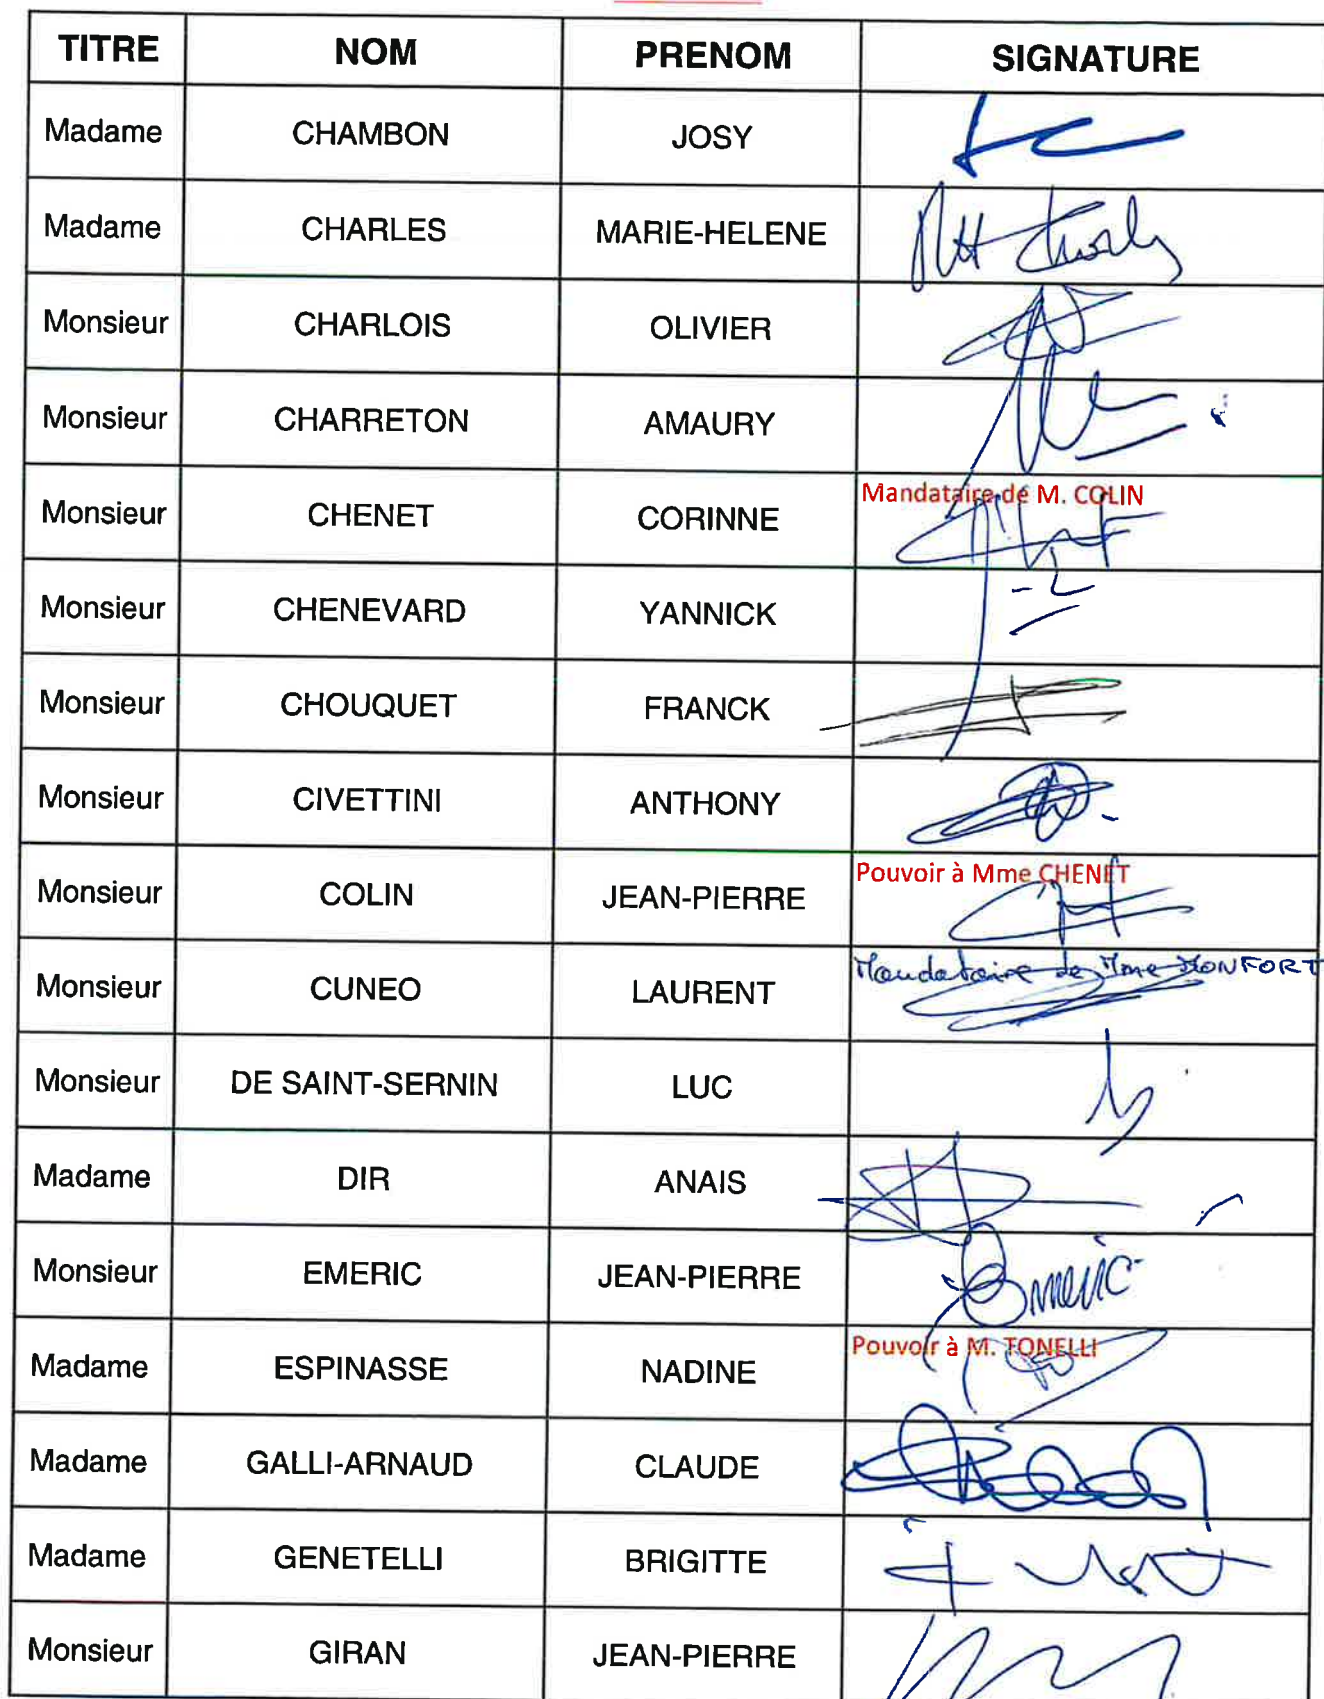 TITRE NOM PRENOM SIGNATURE
Madame CHAMBON JOSY
Madame CHARLES MARIE-HELENE MH Charles
Monsieur CHARLOIS OLIVIER
Monsieur CHARRETON AMAURY
Monsieur CHENET CORINNE Mandataire de M. COLIN
Monsieur CHENEVARD YANNICK
Monsieur CHOUQUET FRANCK
Monsieur CIVETTINI ANTHONY
Monsieur COLIN JEAN-PIERRE Pouvoir à Mme CHENET
Monsieur CUNEO LAURENT Mandataire de Mme MONFORT
Monsieur DE SAINT-SERNIN LUC
Madame DIR ANAIS
Monsieur EMERIC JEAN-PIERRE Emeric
Madame ESPINASSE NADINE Pouvoir à M. TONELLI
Madame GALLI-ARNAUD CLAUDE
Madame GENETELLI BRIGITTE
Monsieur GIRAN JEAN-PIERRE